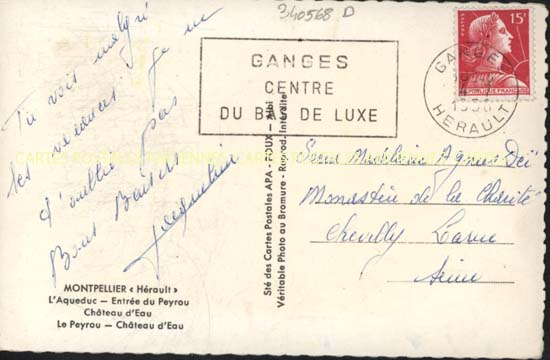 340568 D
GANGES
CENTRE
DU BAS DE LUXE
15F
REPUBLIQUE FRANÇAISE
GANGES
1956
HERAULT
Tu vois malgré
les vacances je ne
t'oublie pas
Bons Baisers
Jacqueline
Sté des Cartes Postales APA - POUX - Albi
Véritable Photo au Bromure - Reprod. Interdite
Soeur Madeleine Agnus Déi
Monastère de la Charité
Chevilly Larue
Seine
MONTPELLIER « Hérault »
L'Aqueduc — Entrée du Peyrou
Château d'Eau
Le Peyrou — Château d'Eau